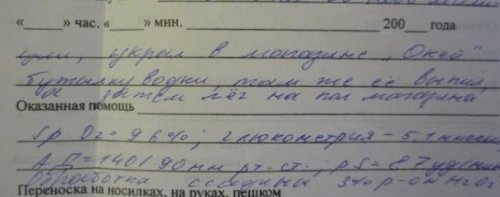 «____» час. «____» мин. 200__ года
украл в магазине „Окей"
бутылку водки, там же её выпил,
а затем лёг на пол магазина
Оказанная помощь
Sp O2 = 96%; глюкометрия – 5.1
АД = 140/90 мм рт. ст.; PS = 87 уд/мин
обработка ссадины 3% р-ом H2O2
Переноска на носилках, на руках, пешком